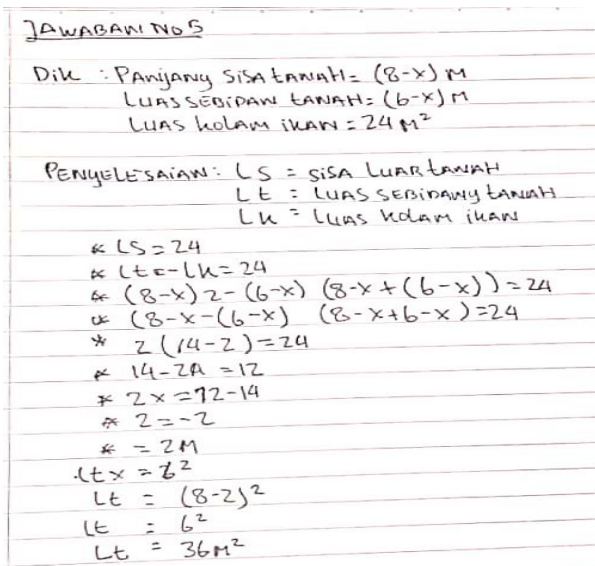 JAWABAN NO 5
Dik : PANjANG SISA tANAH = (8-x) M
LUAS SEBIDAN tANAH = (6-x) M
LUAS kOLAM iKAN = 24 M²
PENYELESAiAN : LS = SiSA LUAR tANAH
Lt = LUAS SEBiDANG tANAH
Lk = LUAS kOLAM iKAN
* LS = 24
* Lt = - Lk = 24
* (8-x) 2 - (6-x) (8-x + (6-x)) = 24
* (8-x-(6-x) (8-x+6-x) = 24
* 2 (14-2) = 24
* 14-2A = 12
* 2x = 12-14
* 2 = -2
* = 2M
Ltx = 6²
Lt = (8-2)²
Lt = 6²
Lt = 36M²